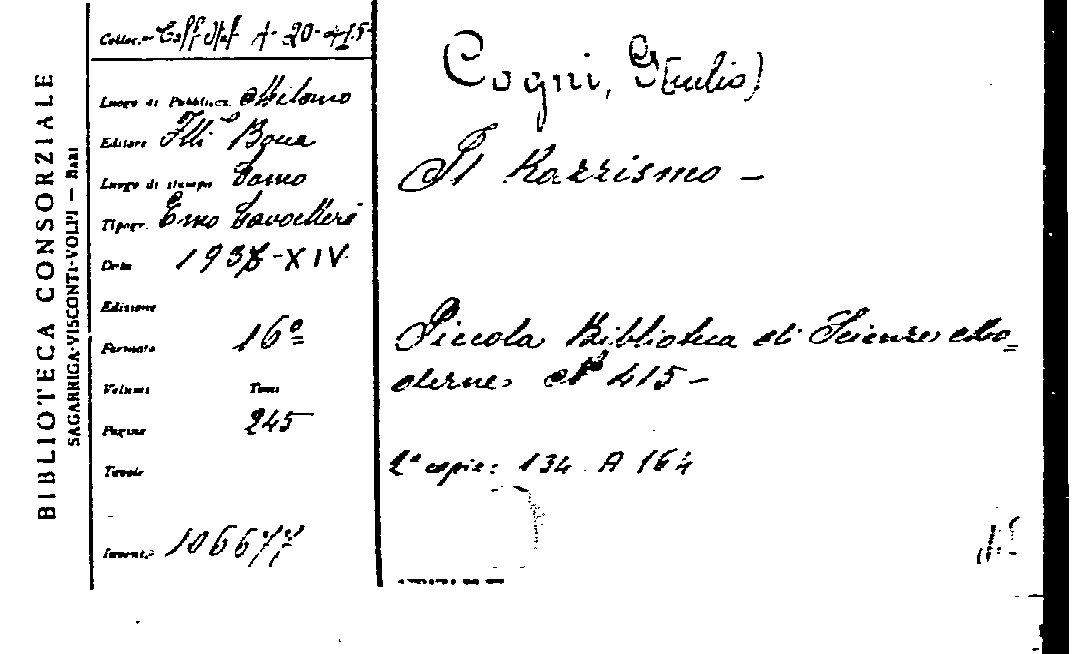 BIBLIOTECA CONSORZIALE
SAGARRIGA-VISCONTI-VOLPI — BARI
Colloc. A-20-415
Luogo di Pubblicaz. Milano
Editore F.lli Bocca
Luogo di stampa Como
Tipogr. Emo Cavalleri
Data 1936-XIV
Edizione
Formato 16º
Volumi Tomi
Pagine 245
Tavole
Invent. 106677
Cogni, G(iulio)
Il Razzismo —
Piccola Biblioteca di Scienze Mo=
derne Nº 415 —
2ª copia: 134 A 164